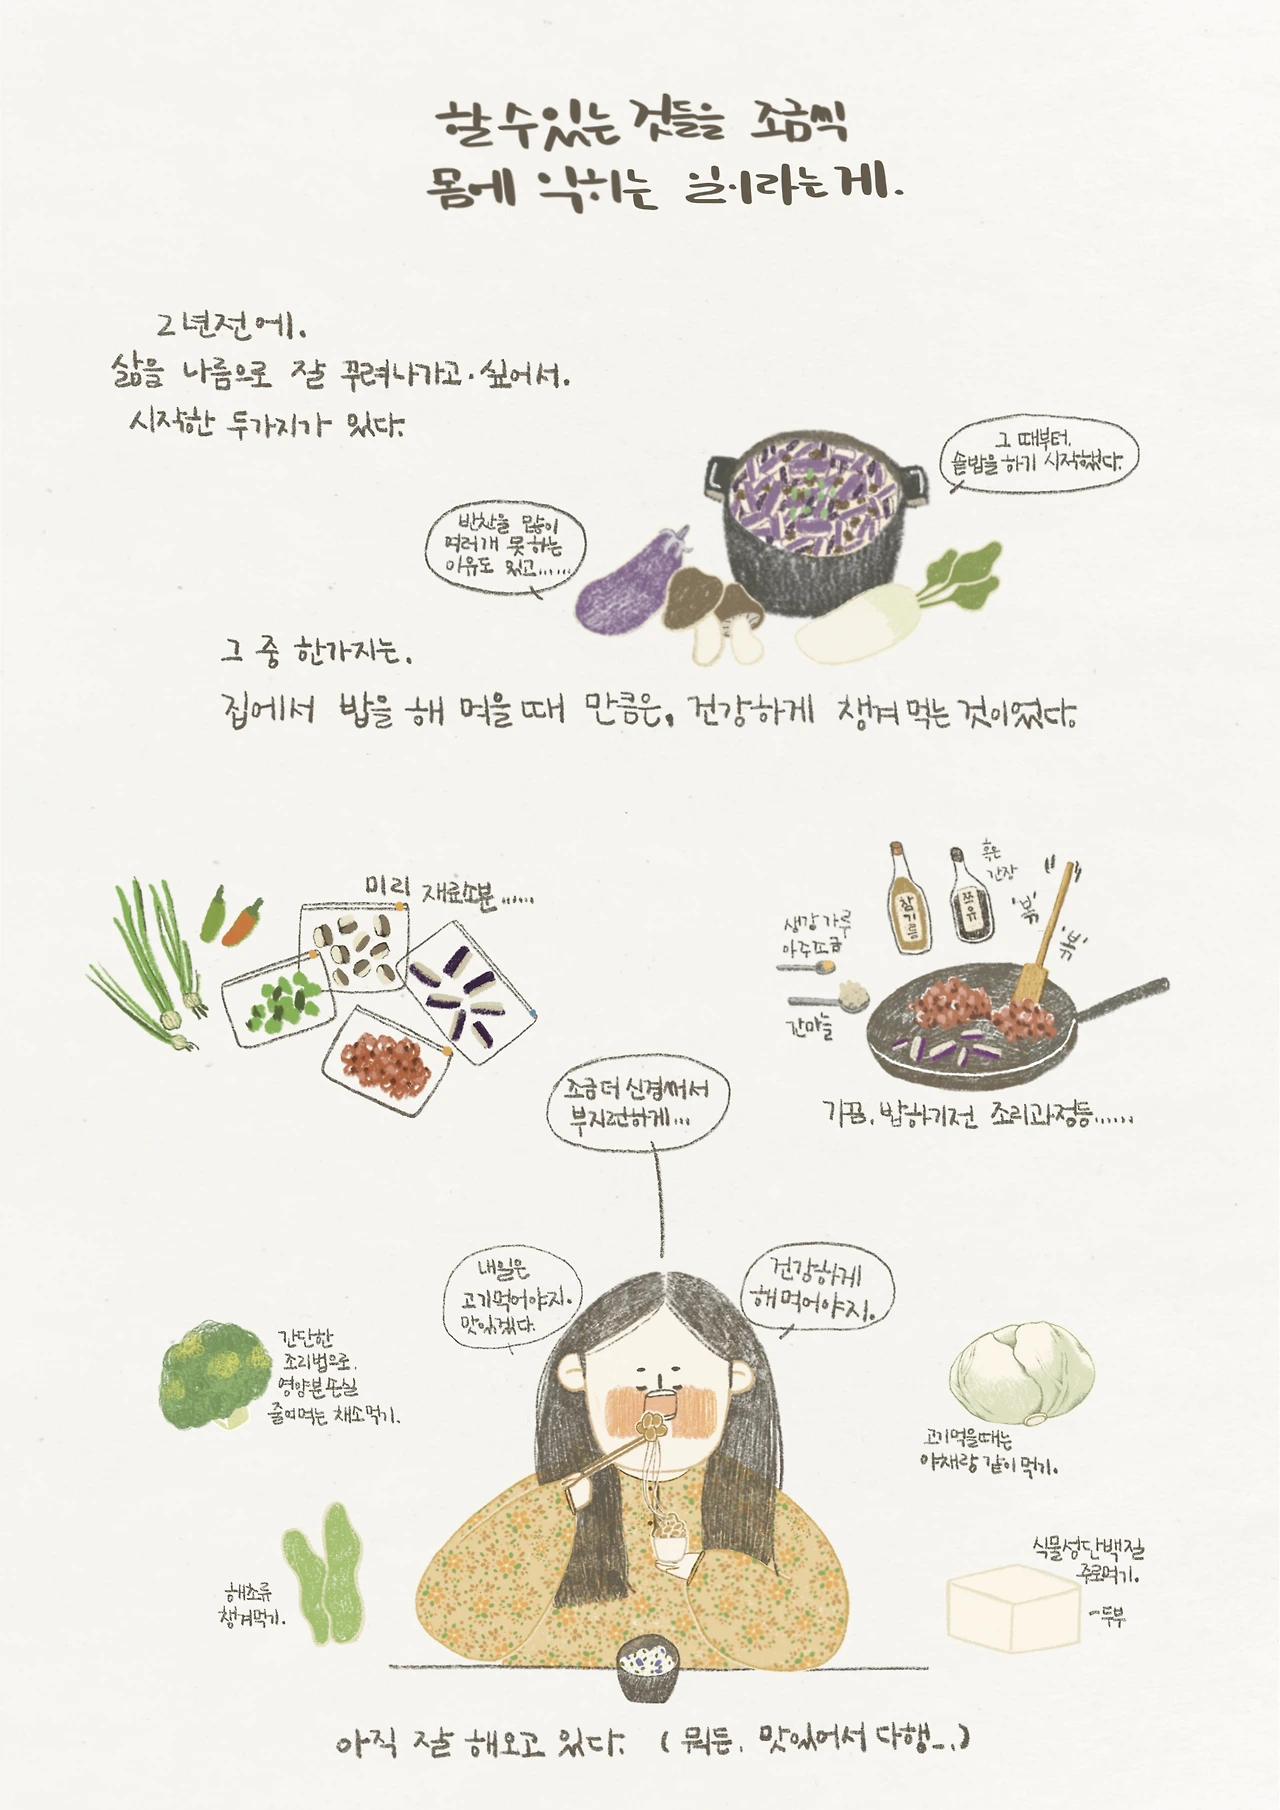 할 수 있는 것들을 조금씩
몸에 익히는 일이라는 게.
2년전에.
삶을 나름으로 잘 꾸려나가고 싶어서.
시작한 두가지가 있다.
그 때부터.
솥밥을 하기 시작했다.
반찬을 많이
여러개 못하는
이유도 있고......
그 중 한가지는.
집에서 밥을 해 먹을 때 만큼은, 건강하게 챙겨 먹는 것이었다.
미리 재료소분......
참기름
쯔유
혹은
간장
'볶'
'볶'
생강가루
아주쪼금
간마늘
가끔. 밥하기전 조리과정등......
조금 더 신경써서
부지런하게...
내일은
고기먹어야지.
맛있겠다.
건강하게
해먹어야지.
간단한
조리법으로.
영양분손실
줄여먹는 채소먹기.
고기먹을때는
야채랑 같이 먹기.
해초류
챙겨먹기.
식물성단백질
주로먹기.
-두부
아직 잘 해오고 있다. (뭐든. 맛있어서 다행_.)